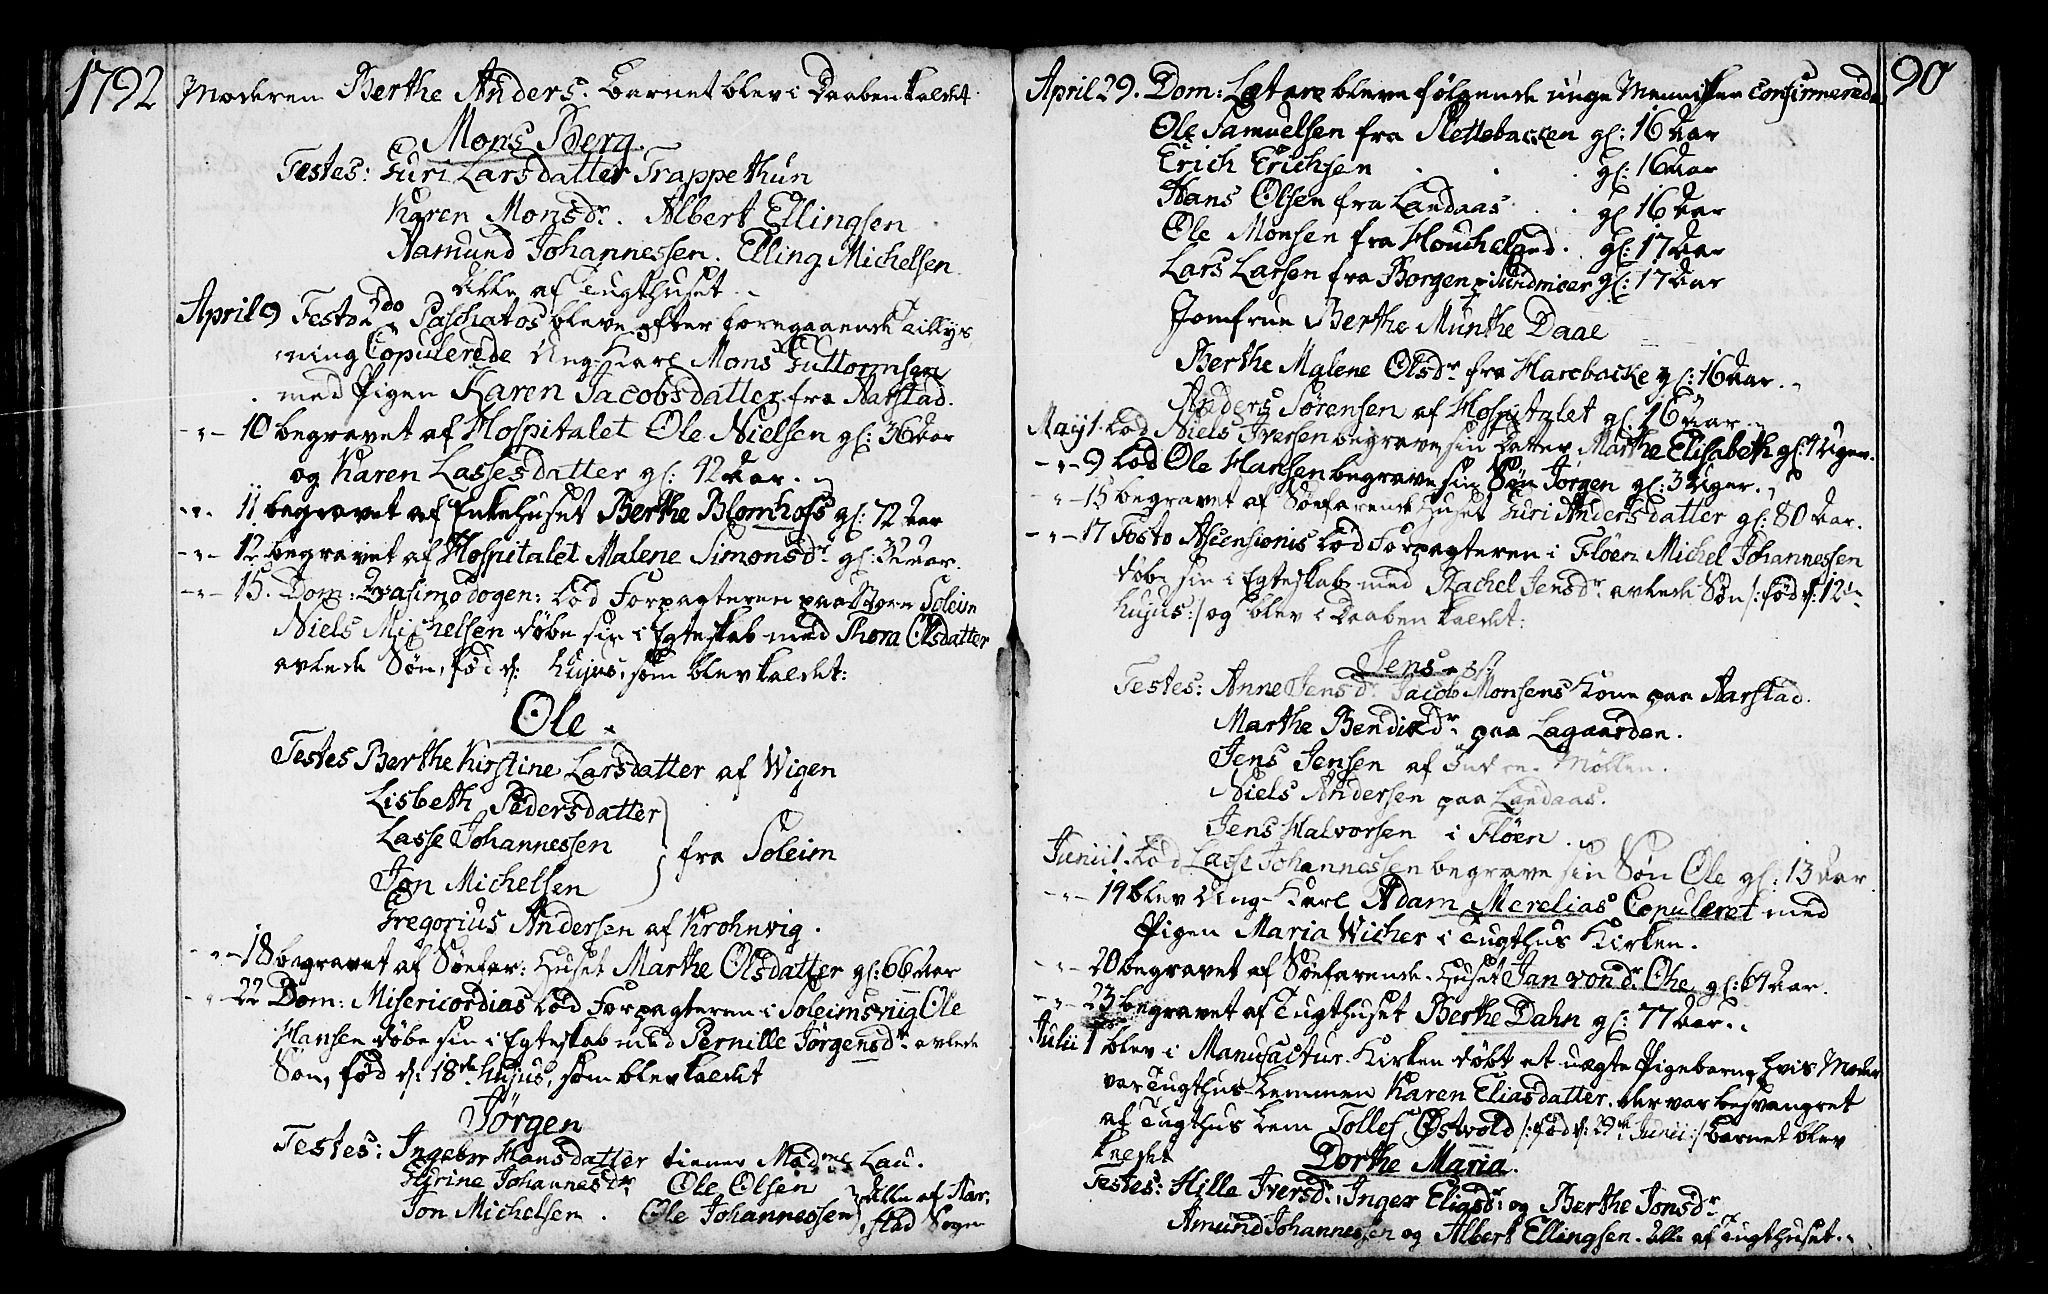 1792
Moderen Berthe Anders. Barnet blev i Daaben kaldet
Mons Berg.
Testes: Guri Larsdatter Trappethun
Karen Monsdr. Albert Ellingsen
Aamund Johannessen. Elling Michelsen
alle af Tugthuset.
April 9 Festo 2do Paschatos bleve efter foregaaende Tillys
ning Copulerede Ung-Karl Mons Guttormsen
med Pigen Karen Jacobsdatter fra Aarstad.
-"- 10 begravet af Hospitalet Ole Nielsen gl: 36 Aar
og Karen Lassesdatter gl: 42 Aar.
-"- 11 begravet af Enkehuset Berthe Blomhoff gl: 72 Aar
-"- 12 begravet af Hospitalet Malene Simonsdr. gl: 32 Aar.
-"- 15. Dom: Qvasimodogen: lod Forpagteren paa Store Soleim
Niels Michelsen døbe sin i Egteskab med Thora Olsdatter
avlede Søn, fød d: hujus, som blev kaldet:
Ole
Testes Berthe Kirstine Larsdatter af Wigen
Lisbeth Pedersdatter
Lasse Johannessen
fra Soleim
Jon Michelsen
Gregorius Andersen af Krohnvig.
-"- 18 begravet af Søefar: Huset Marthe Olsdatter gl: 66 Aar
-"- 22 Dom: Misericordias lod Forpagteren i Soleimsviig Ole
Hansen døbe sin i Egteskab med Pernille Jørgensdr. avlede
Søn, fød d: 18de hujus, som blev kaldet
Jørgen
Testes: Ingebor Hansdatter tiener Madme Lau.
Johannesdr Ole Olsen
Jon Michelsen. Ole Johannessen
alle af Aar-
stad Sogn
90
April 29. Dom: Lætare bleve følgende unge Mennisker confirmerede
Ole Samuelsen fra Slettebacken gl: 16 Aar
Erich Erichsen . . . gl: 16 Aar
Hans Olsen fra Landaas . . gl 16 Aar
Ole Monsen fra Houcheland. gl: 17 Aar
Lars Larsen fra Borgen i Sundmoer gl: 17 Aar
Jomfrue Berthe Munthe Daae
Berthe Malene Olsdr. fra Harebacke gl: 16 Aar.
Anders Sørensen af Hospitalet gl: 16 Aar.
Maji 1. lod Niels Iversen begrave sin Datter Marthe Elisabeth gl: 4 Uger.
-"- 9 lod Ole Hansen begrave sin Søn Jørgen gl: 3 Uger.
-"- 15 begravet af Søefarende Huset Guri Andersdatter gl: 80 Aar.
-"- 17 Festo Ascensionis lod Forpagteren i Fløen Michel Johannessen
døbe sin i Egteskab med Rachel Jensdr. avlede Søn /: fød d: 12te
hujus :/ og blev i Daaben kaldet:
Jens
Testes: Anne Jensdr. Jacob Monsens Kone paa Aarstad.
Marthe Bendixdr. paa Lagaarden.
Jens Jensen af Møllen.
Niels Andersen paa Landaas.
Jens Halvorsen i Fløen.
Junii 1. lod Lasse Johannessen begrave sin Søn Ole gl: 13 Aar
-"- 19 blev Ung-Karl Adam Merelias Copuleret med
Pigen Maria Wicher i Tugthus Kirken.
-"- 20 begravet af Søefarende-Huset Jan von dr. Ohe gl: 64 Aar.
-"- 23 begravet af Tugthuset Berthe Dahn gl: 77 Aar.
Julii 1 blev i Manufactur-Kirken døbt et uægte Pigebarn, hvis Moder
var Tugthus-Lemmen Karen Eliasdatter. der var besvangret
af Tugthus Lem Tollef Østvold /: fød d: 29de Junii :/ barnet blev
kaldet
Dorthe Maria.
Testes: Hille Iversdr. Inger Eliasdr. og Berthe Jonsdr
Amund Johannessen og Albert Ellingsen. alle af Tugthuset.